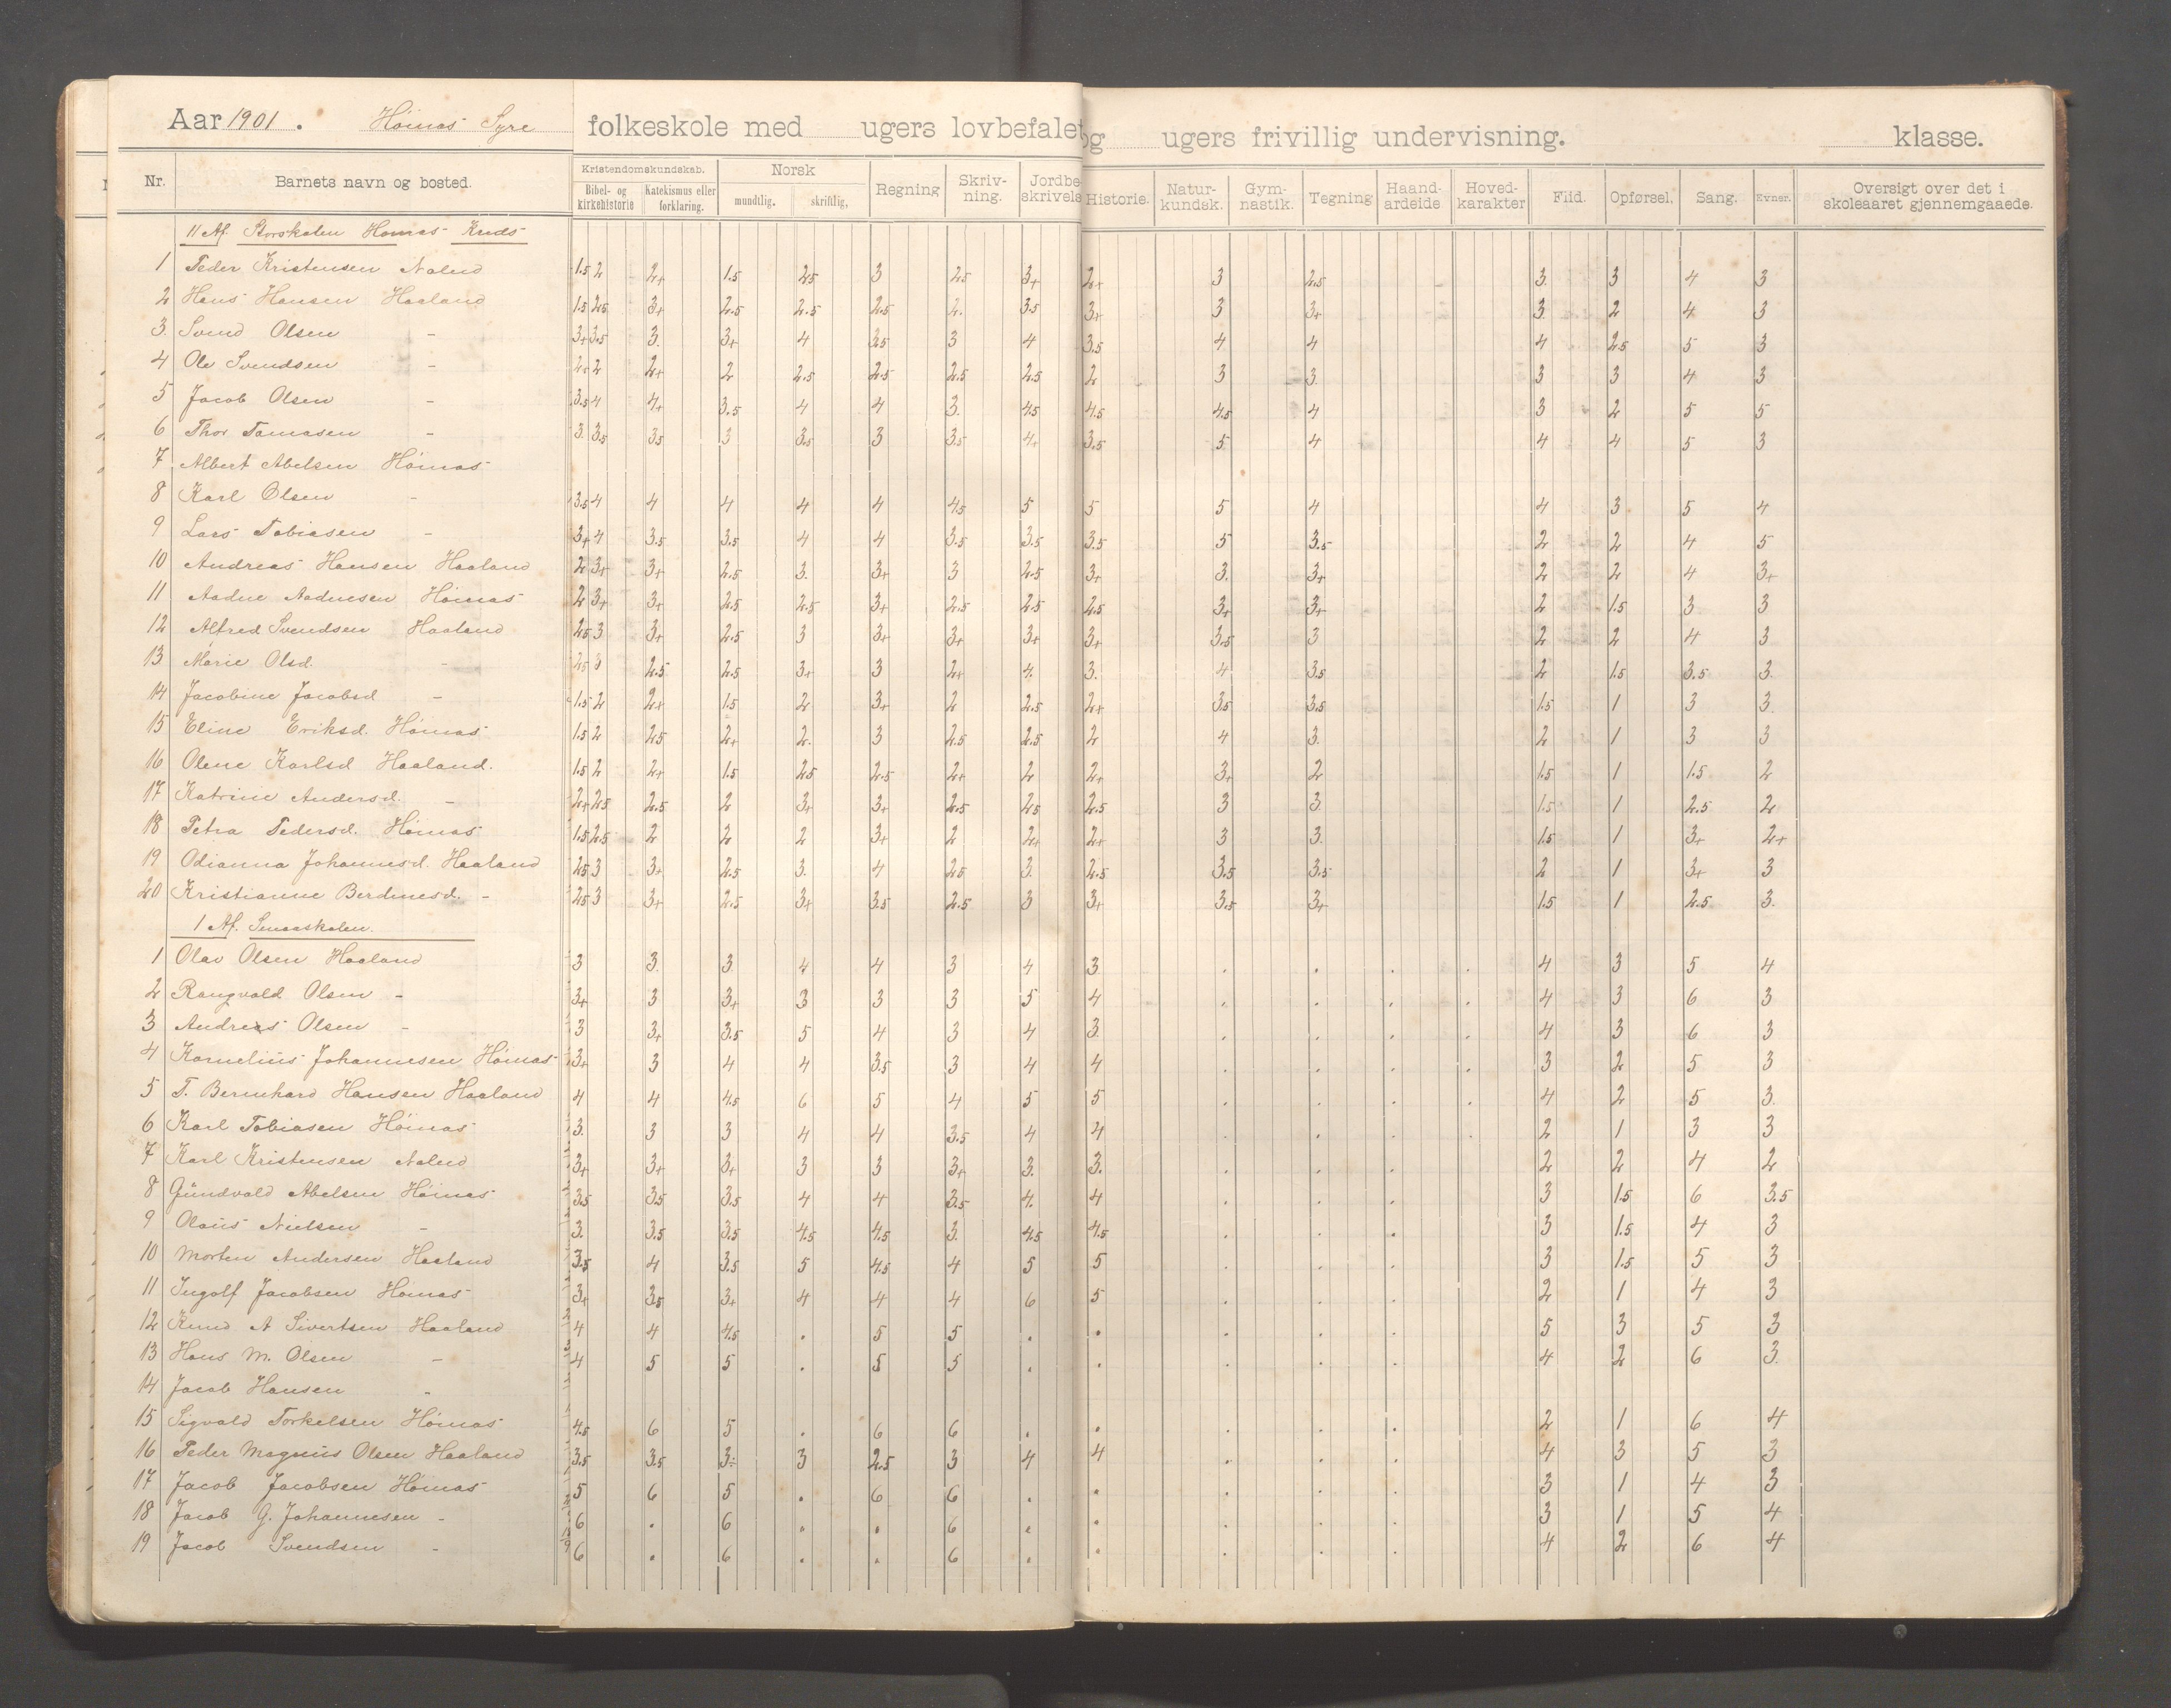 Aar 1901. Høinæs Syre folkeskole med ugers lovbefalet og ugers frivillig undervisning. klasse.
Nr. Barnets navn og bosted. Kristendomskundskab. Bibel- og kirkehistorie Katekismus eller forklaring. Norsk mundtlig. skriftlig. Regning Skriv-ning. Jordbe-skrivels Historie. Natur-kundsk. Gym-nastik. Tegning Haand-ardeide Hoved-karakter Flid. Opførsel. Sang. Evner. Oversigt over det i skoleaaret gjennemgaaede.
II Af. Storskolen Høinæs Kreds
1 Peder Kristensen 1.5 2 2+ 1.5 2.5 3 2.5 3+ 2+ 3 2.5 3. 3 4 3
2 Hans Hansen Haaland 1.5 2.5 3+ 2.5 2.5 2.5 2. 3.5 3+ 3 3+ 3 2 4 3
3. Svend Olsen - 3+ 3.5 3. 3+ 4 3.5 3 4 3.5 4 4 4 2.5 5 3
4 Ole Svendsen - 2+ 2 2+ 2 2.5 2.5 2.5 2.5 2 3 3. 3 3 4 3
5 Jacob Olsen - 3.5 4 4+ 3.5 4 4 3. 4.5 4.5 4.5 4 3 2 5 5
6 Thor Tomasen - 3. 3.5 3.5 3 3.5 3 3.5 4+ 3.5 5 4 4 4 5 3
7 Albert Abelsen Høinæs
8 Karl Olsen - 3.5 4 4 4 4 4 4.5 5 5 5 4 4 3 5 4
9 Lars Tobiasen - 3+ 4 3.5 3.5 4 4 3.5 3.5 3.5 5 3.5 2 2 4 5
10 Andreas Hansen Haaland 2 3+ 3+ 2.5 3. 3+ 3 2.5 3+ 3. 3+ 2 2 4 3+
11 Aadne Aadnesen Høinæs 2 3+ 3+ 2.5 2.5 3+ 2.5 2.5 2.5 3+ 3+ 2 1.5 3 3
12 Alfred Svendsen Haaland 2.5 3 3+ 2.5 3 3+ 3+ 3+ 3+ 3.5 3 2 2 4 3
13 Marie Olsd. - 2.5 3 2.5 2.5 3+ 3 2+ 4. 3. 4 3.5 2 1.5 3.5 3.
14 Jacobine Jacobsd - 1.5 2 2+ 1.5 2 3+ 2 2.5 2+ 3.5 3.5 1.5 1 3 3.
15 Eline Eriksd. Høinæs 1.5 2 2.5 2+ 2. 3 2.5 2.5 2 4 3. 2 1 3 3
16 Olene Karlsd Haaland. 1.5 2 2+ 1.5 2.5 2.5 2+ 2 2+ 3+ 2 1.5 1 1.5 2
17 Katrine Andersd. - 2+ 2.5 2.5 2 3+ 3+ 2.5 2.5 2.5 3 3 1.5 1 2.5 2
18 Petra Pedersd. Høinæs 1.5 2.5 2 2 2 3+ 2 2+ 2+ 3 3. 1.5 1 3+ 2+
19 Odianna Johannesd. Haaland 2.5 3 3+ 2.5 3. 4 2.5 3. 2.5 3.5 3.5 2 1 3+ 3
20 Kristianne Berdinesd. - 2.5 3 3+ 2.5 3+ 3.5 2.5 3 3+ 3.5 3+ 1.5 1 2.5 3.
1 Af. Smaaskolen.
1 Olav Olsen Haaland 3 3. 3. 4 4 3 4 3 . . . . 4 3 5 4
2 Rangvald Olsen - 3+ 3 3+ 3 3 3 5 4 . . . . 4 3 6 3
3 Andreas Olsen - 3 3+ 3.5 5 4 3 4 3. . . . . 4 3 6 3
4 Kornelius Johannesen Høinæs 3+ 3 4 4 3.5 3 4 4 . . . . 3 2 5 3
5 T. Bernhard Hansen Haaland 4 4 4.5 6 5 4 5 5 . . . . 4 2 5 3.
6 Karl Tobiasen Høinæs 3. 3 3 4 4 3.5 4 4 . . . . 2 1 3 3
7 Karl Kristensen 3+ 3+ 3+ 3 3 3+ 3. 3. . . . 2 2 4 2
8 Gundvald Abelsen Høinæs 3.5 3.5 3.5 4 4 3.5 4. 4 . . . 3 1.5 6 3.5
9 Olaus Nielsen - 3. 3.5 3.5 4.5 4.5 3. 4.5 4.5 . . . 3 1.5 4 3
10 Morten Andersen Haaland 3.5 4 3.5 5 4.5 4 5 5 . . . 3 1.5 5 3
11 Ingolf Jacobsen Høinæs 3+ 3.5 3+ 4 4 4 6 5 . . . 2 1 4 3
12 Knud A Sivertsen Haaland 4 4 4.5 . 5 5 . . . . . 5 3 5 3
13 Hans M. Olsen - 4 5 5 . 5 5 . . . . . 4 2 6 3.
14 Jacob Hansen -
15 Sigvald Torkelsen Høinæs 4.5 6 5 . 6 6 . . . . . 2 1 6 4
16 Peder Magnus Olsen Haaland 3.5 3.5 3÷ 3 2.5 3 4 4 . . . 4 3 5 3
17 Jacob Jacobsen Høinæs 5 6 5 . 6 6 . . . . . 3 1 4 3
18 Jacob G. Johannesen - 6 . 6 . . 6 . . . . . 3 1 5 4
19 Jacob Svendsen - 6 . 6 . . 6 . . . . . 4 2 6 4